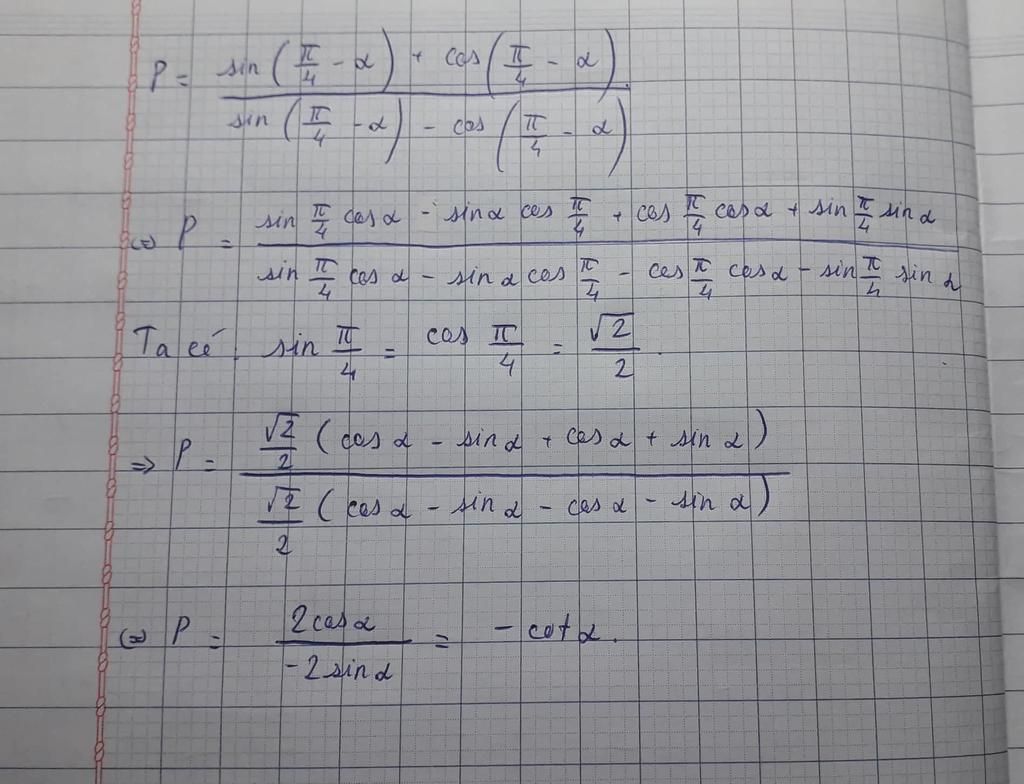 P = \frac{sin(\frac{π}{4} - α) + cos(\frac{π}{4} - α)}{sin(\frac{π}{4} - α) - cos(\frac{π}{4} - α)}
⇔ P = \frac{sin\frac{π}{4} cosα - sinα cos\frac{π}{4} + cos\frac{π}{4} cosα + sin\frac{π}{4} sinα}{sin\frac{π}{4} cosα - sinα cos\frac{π}{4} - cos\frac{π}{4} cosα - sin\frac{π}{4} sinα}
Ta có: sin\frac{π}{4} = cos\frac{π}{4} = \frac{√2}{2}.
⇒ P = \frac{\frac{√2}{2}(cosα - sinα + cosα + sinα)}{\frac{√2}{2}(cosα - sinα - cosα - sinα)}
⇔ P = \frac{2cosα}{-2sinα} = -cotα.